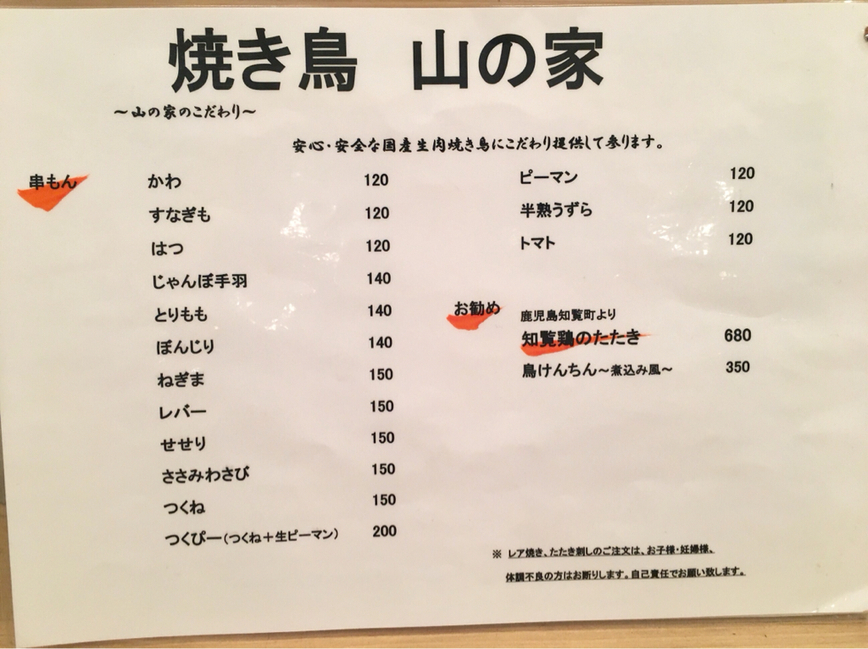 焼き鳥 山の家
～山の家のこだわり～
安心・安全な国産生肉焼き鳥にこだわり提供して参ります。
串もん
かわ 120
すなぎも 120
はつ 120
じゃんぼ手羽 140
とりもも 140
ぼんじり 140
ねぎま 150
レバー 150
せせり 150
ささみわさび 150
つくね 150
つくぴー(つくね＋生ピーマン) 200
ピーマン 120
半熟うずら 120
トマト 120
お勧め
鹿児島知覧町より
知覧鶏のたたき 680
鳥けんちん～煮込み風～ 350
※ レア焼き、たたき刺しのご注文は、お子様・妊婦様、
体調不良の方はお断りします。自己責任でお願い致します。